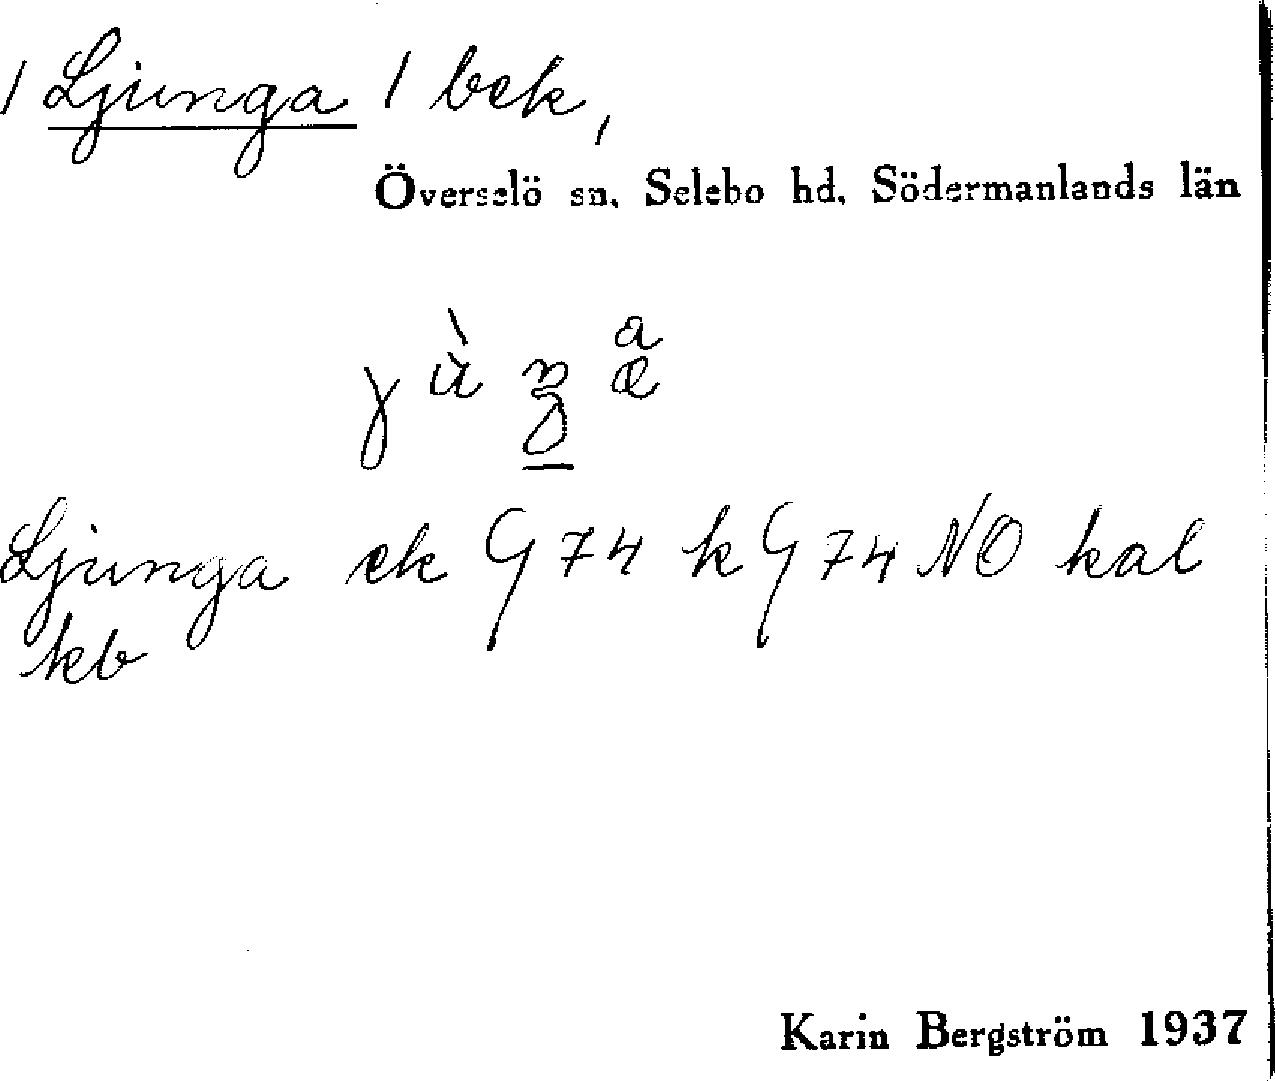 / Ljunga / bek,
Överselö sn. Selebo hd. Södermanlands län
Ljunga ek G 74 k G 74 NO kal
kb
Karin Bergström 1937